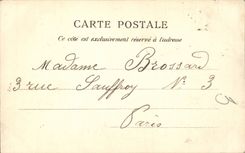 CARTE POSTALE
Ce côté est exclusivement réservé à l'adresse
Madame Brossard
3 rue Sauffroy N° 3
Paris